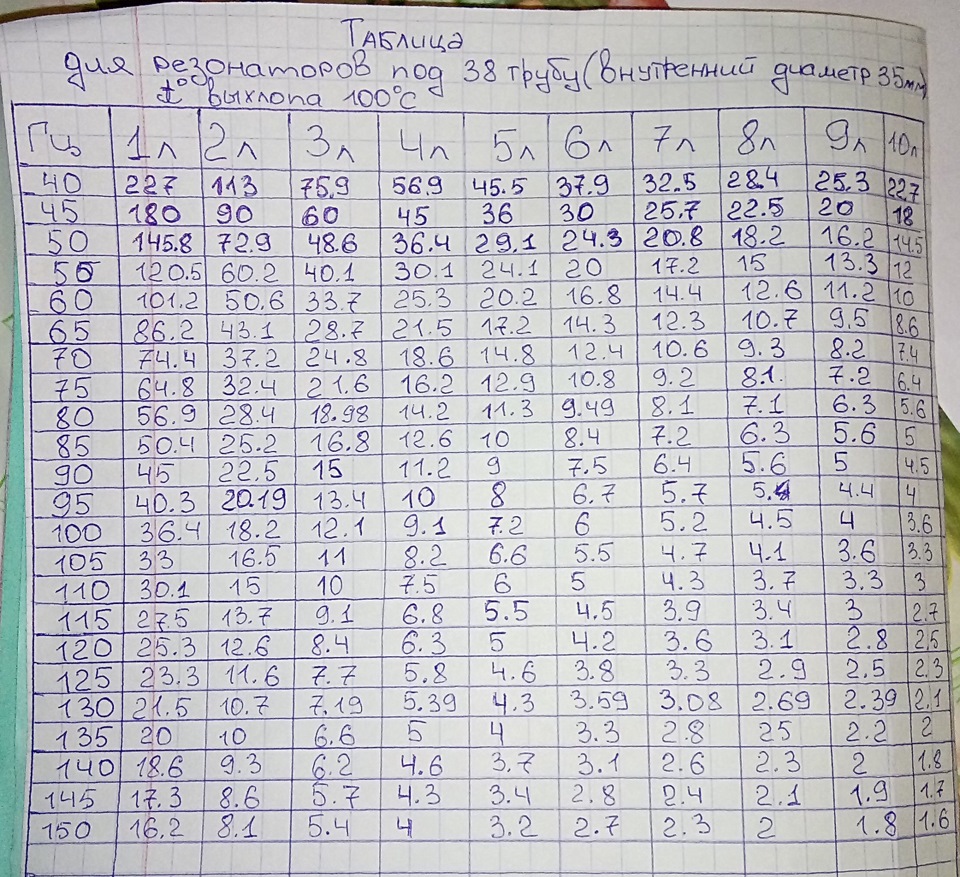 Таблица
для резонаторов под 38 трубу (внутренний диаметр 35мм)
t° ОСР выхлопа 100°C
Гц 1л 2л 3л 4л 5л 6л 7л 8л 9л 10л
40 227 113 75.9 56.9 45.5 37.9 32.5 28.4 25.3 22.7
45 180 90 60 45 36 30 25.7 22.5 20 18
50 145.8 72.9 48.6 36.4 29.1 24.3 20.8 18.2 16.2 14.5
55 120.5 60.2 40.1 30.1 24.1 20 17.2 15 13.3 12
60 101.2 50.6 33.7 25.3 20.2 16.8 14.4 12.6 11.2 10
65 86.2 43.1 28.7 21.5 17.2 14.3 12.3 10.7 9.5 8.6
70 74.4 37.2 24.8 18.6 14.8 12.4 10.6 9.3 8.2 7.4
75 64.8 32.4 21.6 16.2 12.9 10.8 9.2 8.1. 7.2 6.4
80 56.9 28.4 18.98 14.2 11.3 9.49 8.1 7.1 6.3 5.6
85 50.4 25.2 16.8 12.6 10 8.4 7.2 6.3 5.6 5
90 45 22.5 15 11.2 9 7.5 6.4 5.6 5 4.5
95 40.3 20.19 13.4 10 8 6.7 5.7 5.4 4.4 4
100 36.4 18.2 12.1 9.1 7.2 6 5.2 4.5 4 3.6
105 33 16.5 11 8.2 6.6 5.5 4.7 4.1 3.6 3.3
110 30.1 15 10 7.5 6 5 4.3 3.7 3.3 3
115 27.5 13.7 9.1 6.8 5.5 4.5 3.9 3.4 3 2.7
120 25.3 12.6 8.4 6.3 5 4.2 3.6 3.1 2.8 2.5
125 23.3 11.6 7.7 5.8 4.6 3.8 3.3 2.9 2.5 2.3
130 21.5 10.7 7.19 5.39 4.3 3.59 3.08 2.69 2.39 2.1
135 20 10 6.6 5 4 3.3 2.8 25 2.2 2
140 18.6 9.3 6.2 4.6 3.7 3.1 2.6 2.3 2 1.8
145 17.3 8.6 5.7 4.3 3.4 2.8 2.4 2.1 1.9 1.7
150 16.2 8.1 5.4 4 3.2 2.7 2.3 2 1.8 1.6